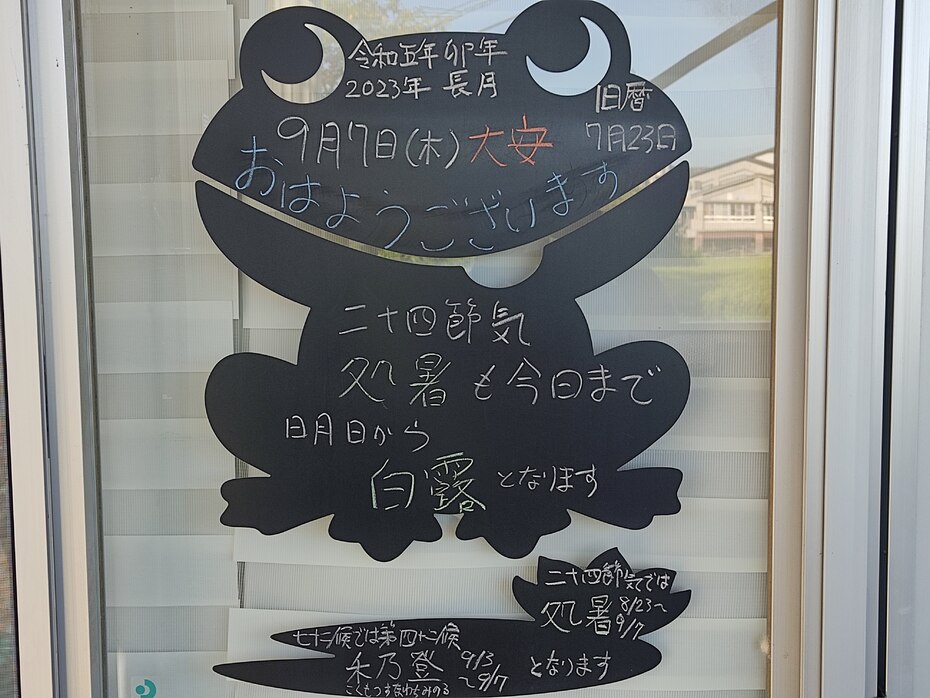 令和五年 卯年
2023年 長月
旧暦
7月23日
9月7日(木) 大安
おはようございます
二十四節気
処暑も今日まで
明日から
白露となります
二十四節気では
処暑 8/23〜9/7
七十二候では第四十二候
禾乃登 9/3〜9/7 となります
こくもつすなわちみのる